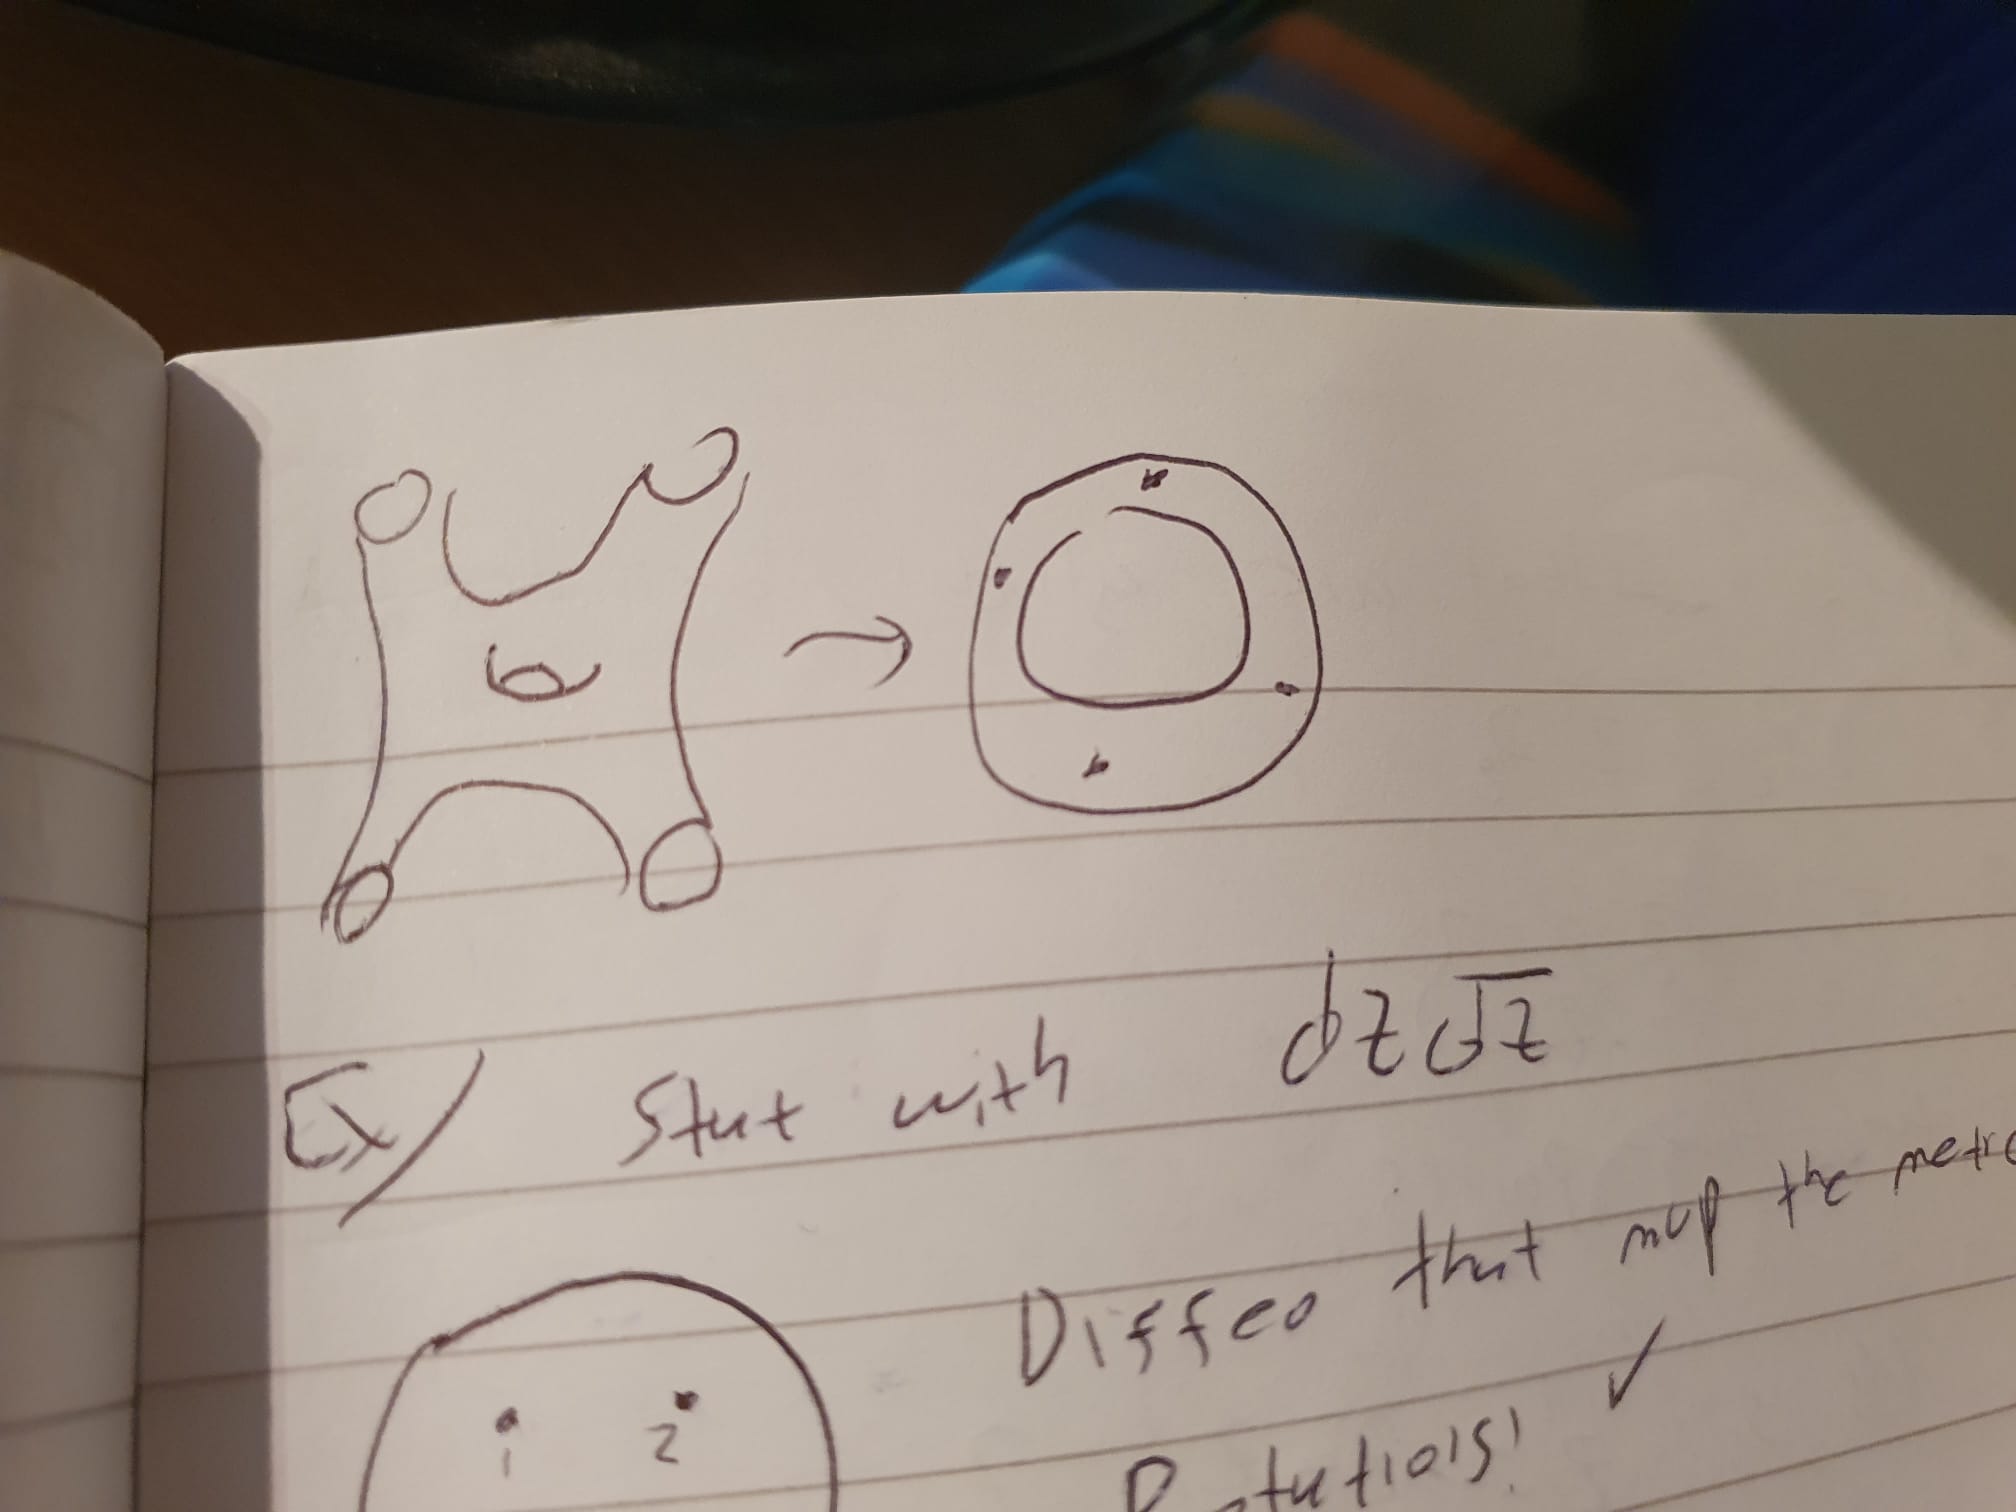 Ex/ Start with dz d̅z̅
Diffeo that map the metric
1 2
Rotations! ✓